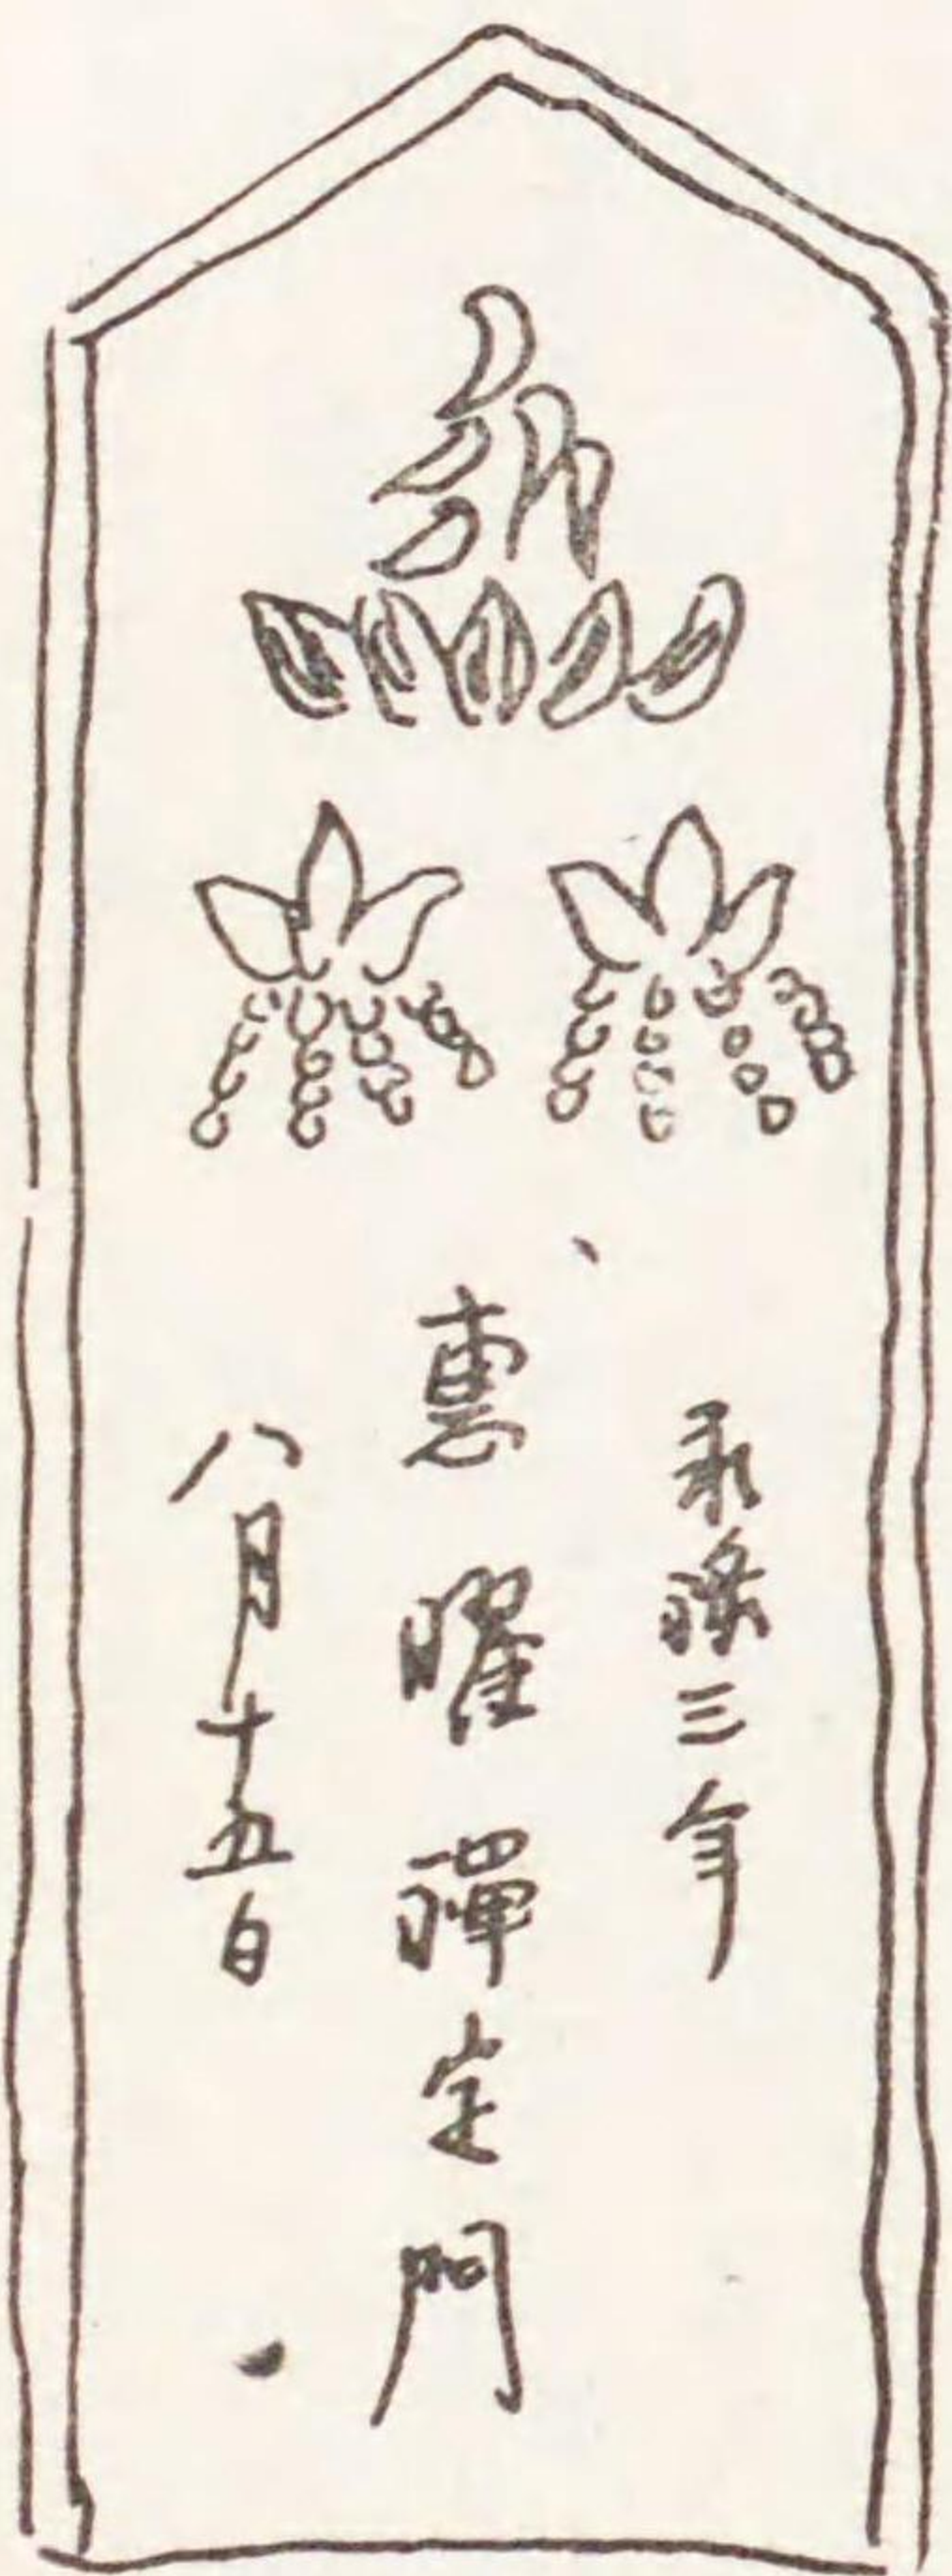 永禄三年
惠曜禅定門
八月十五日